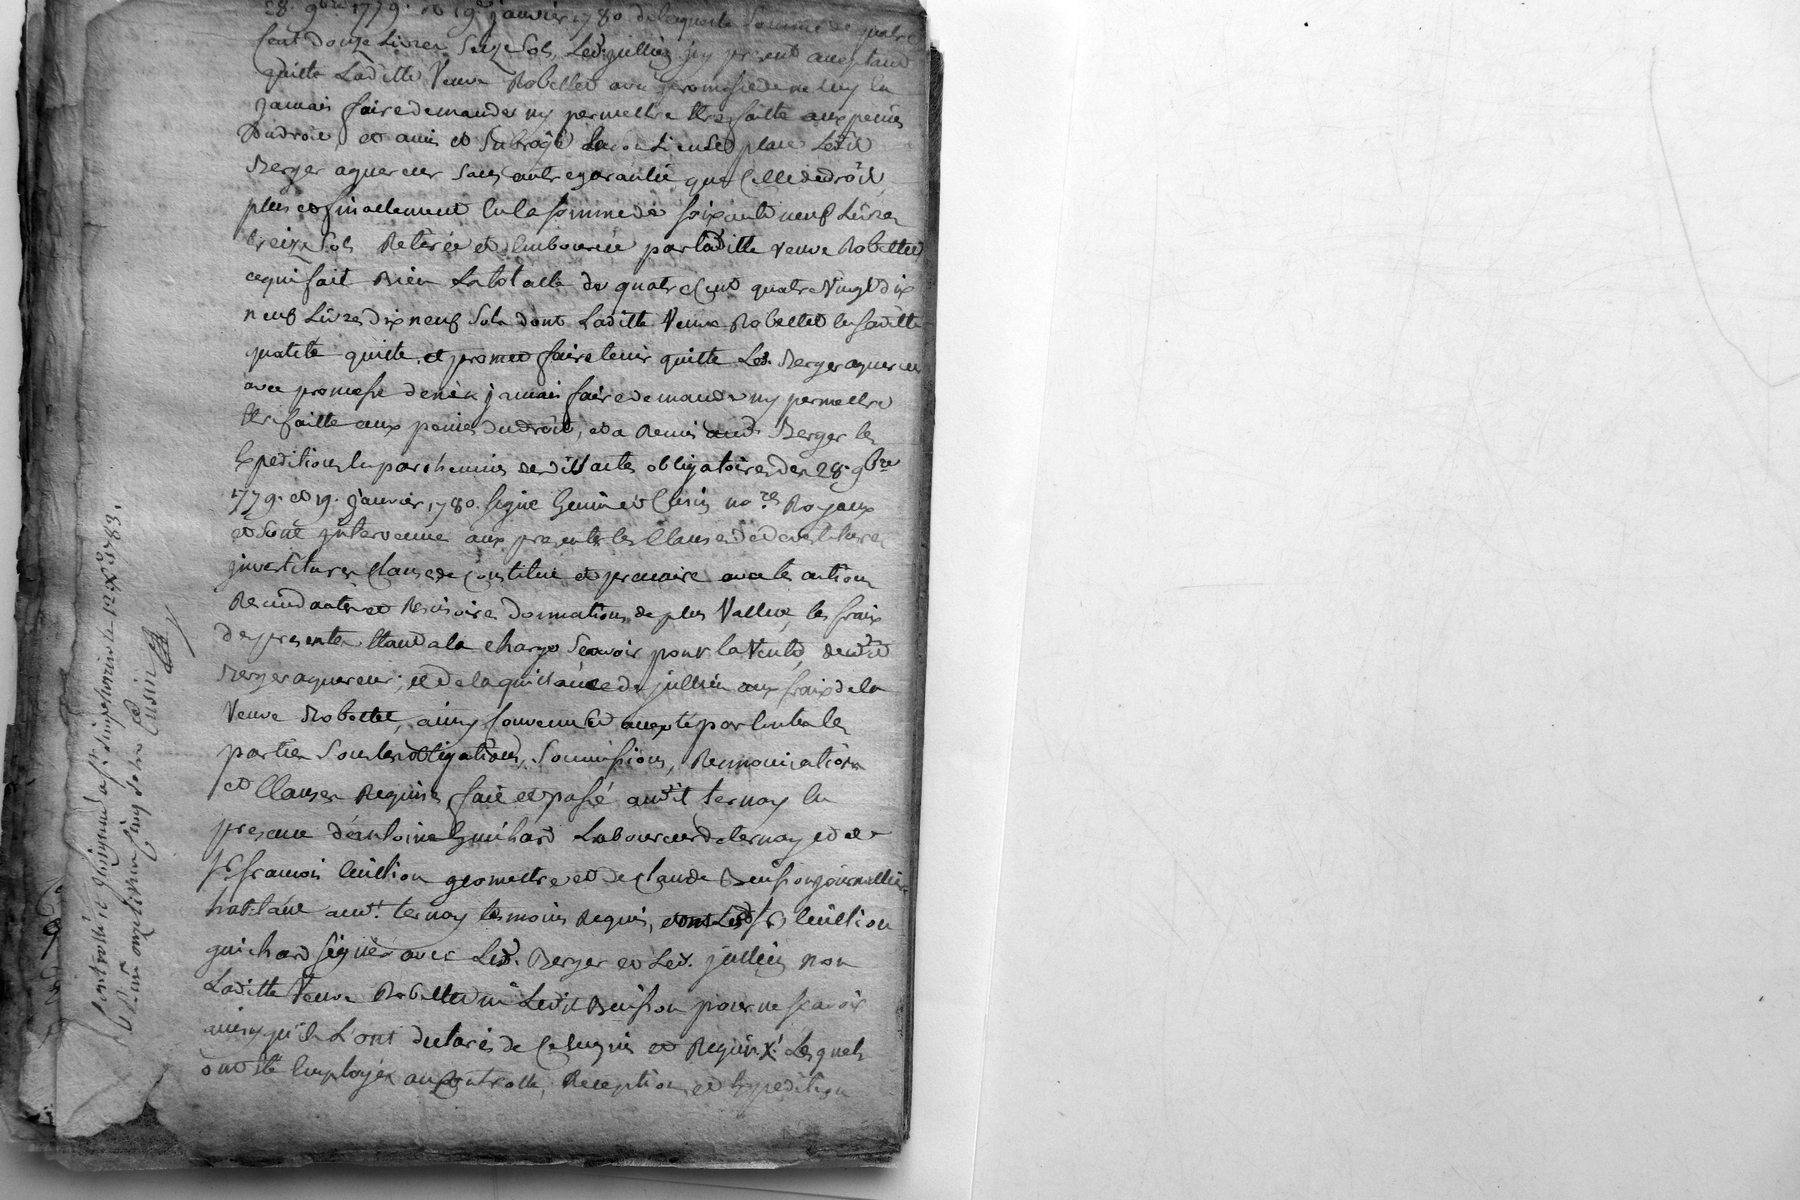 28. 9bre 1779. et 19e janvier 1780. de laquelle somme de quatre
cent douze Livres seize sols, Led. jullien jcy present acceptant
quitte Laditte Veuve Robellet avec promesse de ne luy en
jamais faire demander ny permettre etre faitte aux peines
du droit, et a mis et subrogé en son Lieu et place Ledit
Berger aquereur sans autre garantie que Celle de droit,
plus et finallement en la somme de soixante neuf Livres
treize sols Retirée et emboursée par laditte veuve Robellet
ce qui fait Bien La totalle de quatre Cent quatre Vingt dix
neuf Livres dix neuf sols dont Laditte Veuve Robellet en saditte
qualité quitte et promet faire tenir quitte Led. Berger aquereur
avec promesse de n'en jamais faire demande ny permettre
etre faitte aux peines du droit, et a Remis aud. Berger les
Expeditions en parchemin desdits actes obligatoires des 28. 9bre
1779. et 19. janvier 1780. signé et Cusin no.res Royaux
et sont jntervenues aux presentes les Clauses de devetitures
jnvestitures Clause de Constitut et precaire avec les actions
Rescindantes et Rescisoires donnation de plus Vallue, les frais
des presentes etant a la charge sçavoir pour la Vente, dudit
Berger aquereur; et de la quittance de jullien aux frais de la
Veuve Robellet, ainsy convenu et accepté par toutes les
parties sous les obligations, soumissions, Renonciations
et Clauses Requises fait et passé audit ternay en
presence d'antoine Guichard Laboureur de ternay et de
Sr. francois Cuillion geomettre et de claude Buisson journallier
habitant aud. ternay temoins Requis, Led. Sr. Cuillion
guichard signés avec Led. Berger et Led. jullien non
Laditte Veuve Robellet ni Ledit Buisson pour ne scavoir
ainsy qu'ils L'ont declaré de Ce enquis et Requis Lesquels
ont été Employés au Controlle, Reception et Expedition
Controllé et jnsinué a St. Simphorien le 12 Xbre 1783.
Cusin